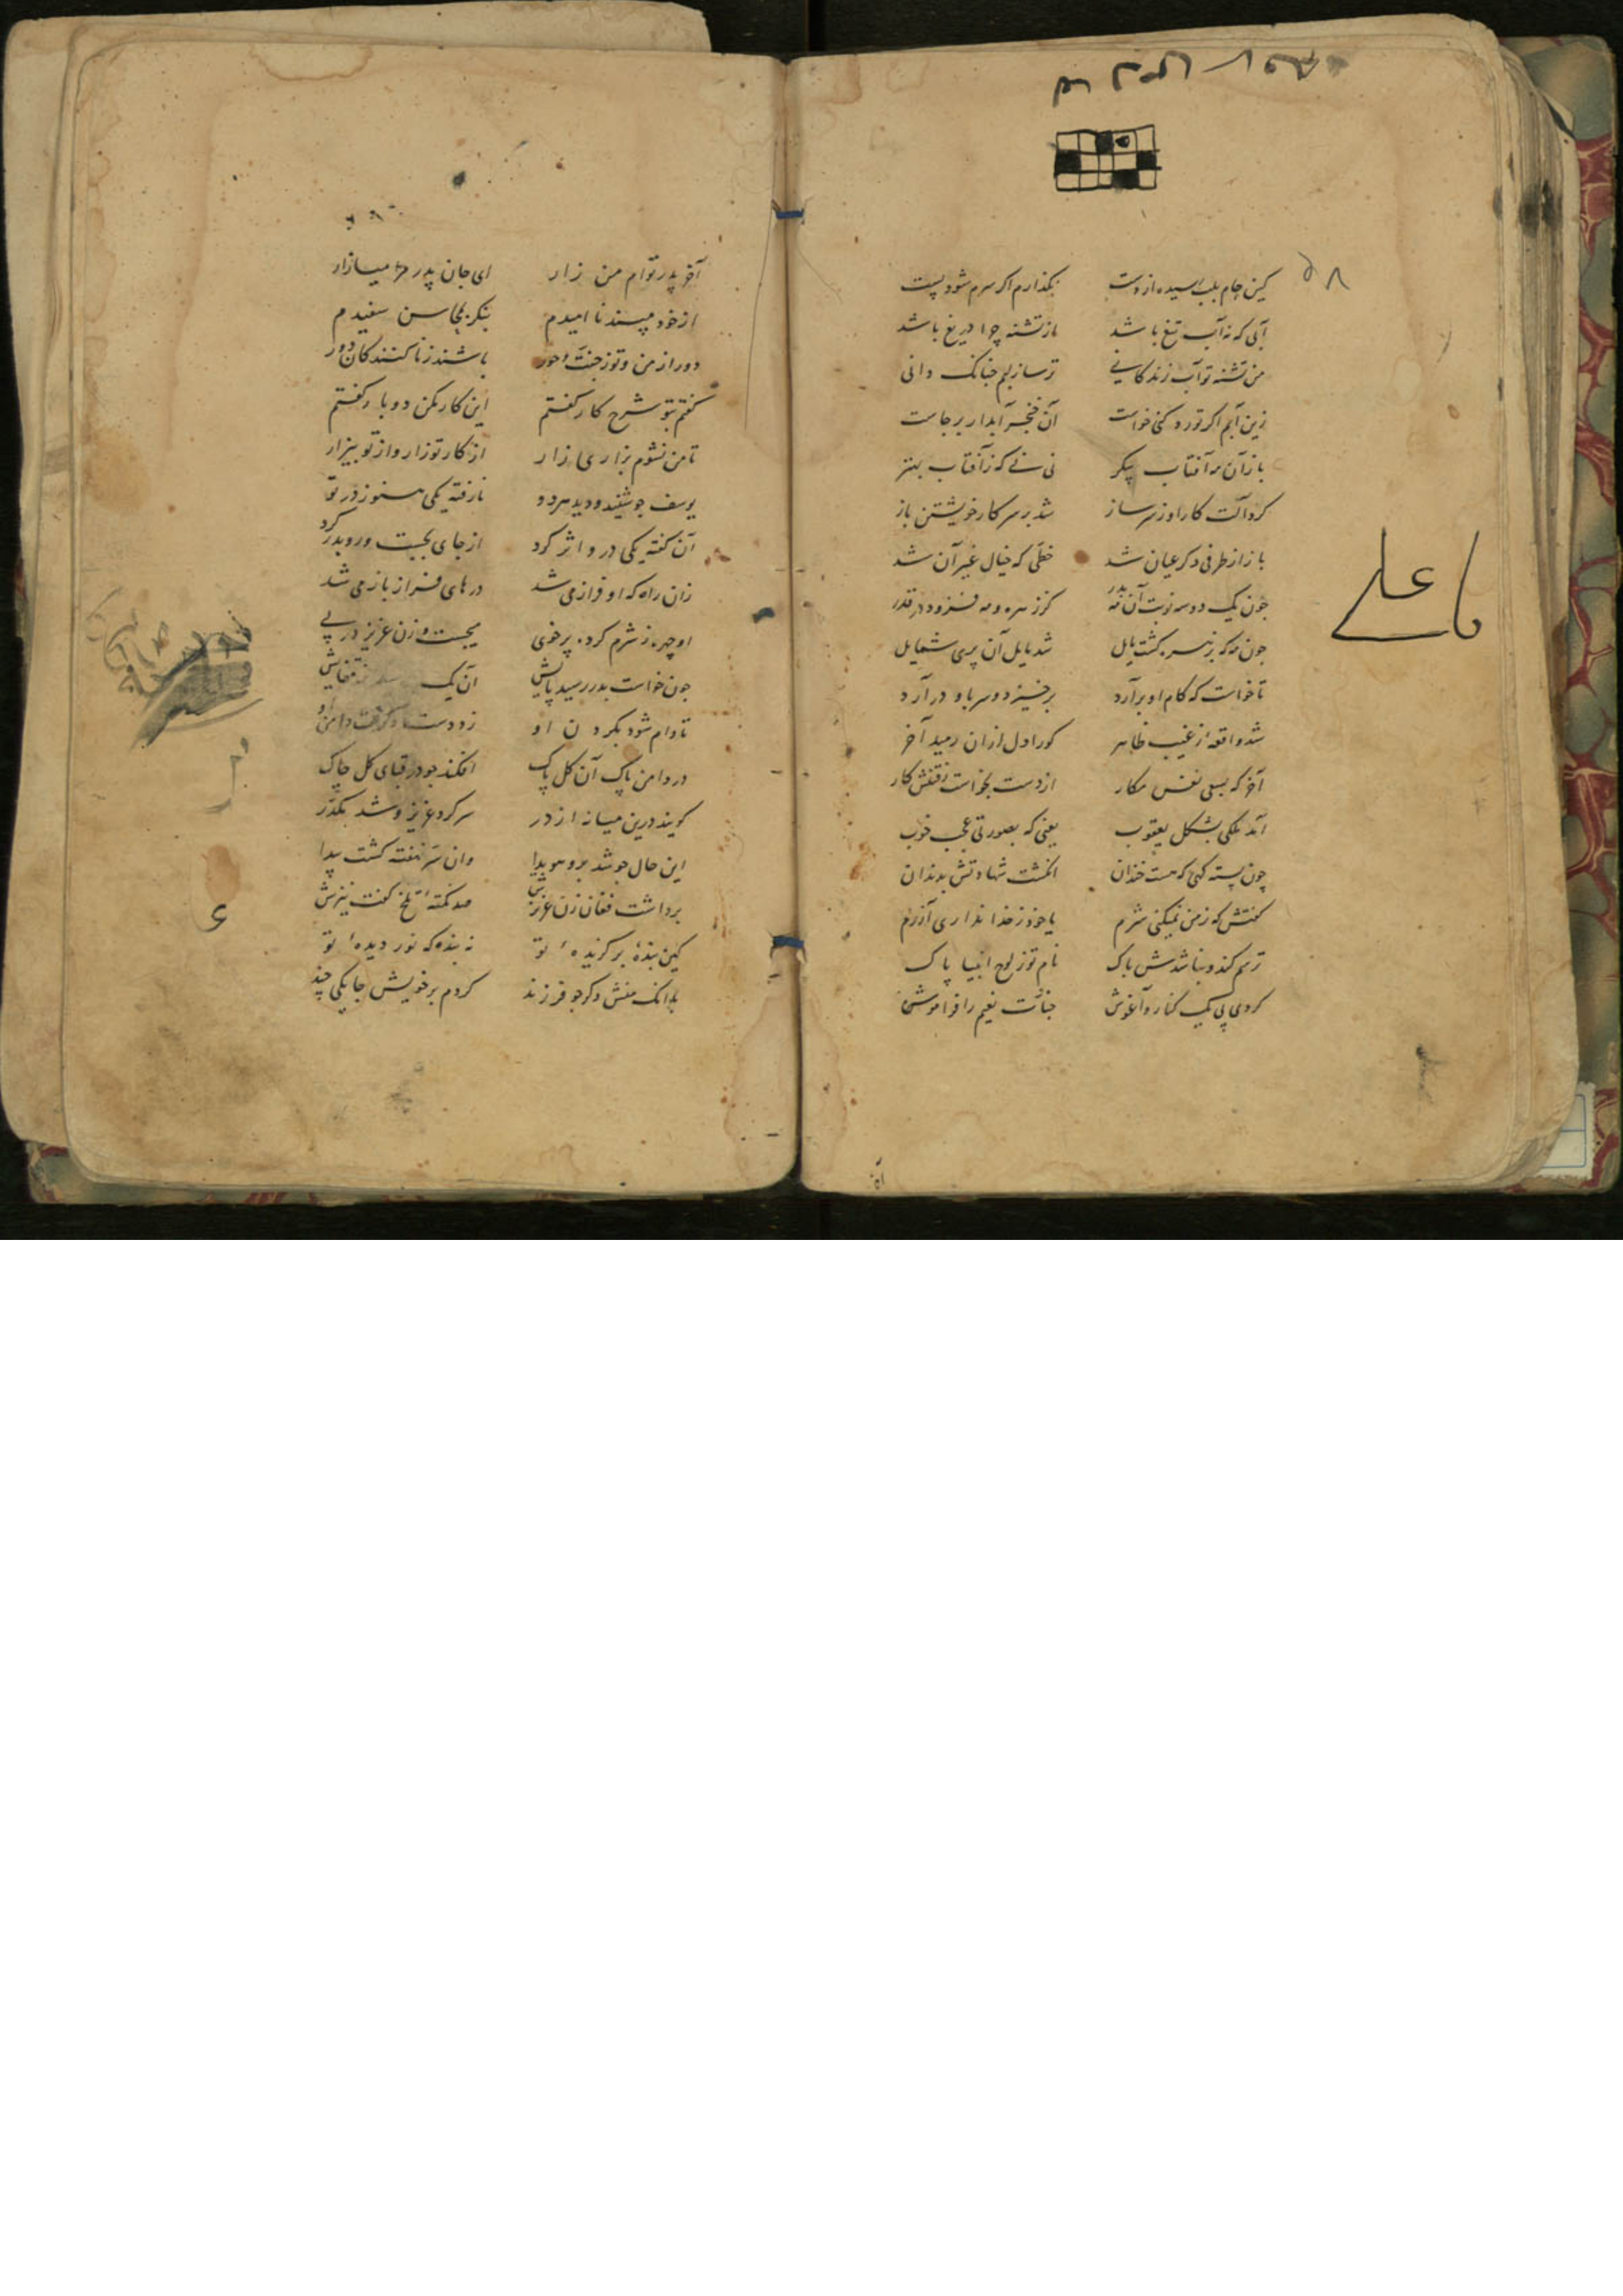 کین جام بلب رسیده از دست بگذارم اکر سرم شود پست
آبی که نه آب تیغ باشد از تشنه چرا دریغ باشد
من تشنه تو آب زندکانی تر ساز لبم چنانک دانی
زین آبم اکر تو رد کنی خواست آن خنجر آبدار برجاست
باز آن مه آفتاب پیکر نی نی که ز آفتاب بهتر
کرد آلت کار او ز سر ساز شد بر سر کار خویشتن باز
باز از طرفی دکر عیان شد خطی که خیال غیر آن شد
جون یک دو سه نوبت آن مه بدر کز زهره و مه فزود در قدر
جون مه که بزهره کشت مایل شد مایل آن پری شمایل
تا خواست که کام او برآرد برخیزد و سر باو درآرد
شد واقعه از غیب ظاهر کو را دل ازان رمید آخر
آخر که بسعی نفس مکار از دست بخواست رفتنش کار
آمد ملکی بشکل یعقوب یعنی که بصورتی عجب خوب
چون پسته کسی که هست خندان انکشت شهادتش بدندان
کفتش که ز من نمیکنی شرم یا خود ز خدا نداری آزرم
ترسم کند و نباشدش باک نام تو ز لوح انبیا پاک
کردی پی یک کنار و آغوش جنات نعیم را فراموش
یا علی
آخر پدر توام من زار ای جان پدر مرا میازار
از خود مپسند نا امیدم بنکر بمحاسن سفیدم
دور از من و تو ز جنت و حور باشند زنا کنندکان دور
کفتم بتو شرح کار کفتم این کار مکن دوبار کفتم
تا من نشوم بزاری زار از کار تو زار و از تو بیزار
یوسف جو شنید و دید هر دو نارفته یکی هنوز در تو
آن کفته یکی درو اثر کرد از جای بجست و رو بدر کرد
زان راه که او فراز می شد درهای فراز باز می شد
او چهره ز شرم کرده پر خوی میجست و زن عزیز در پی
جون خواست بدر رسید پایش آن یک
تا دام شود بکردن او زو دست و کرفت دامن او
در دامن پاک آن کل پاک افکند جو در قبای کل چاک
کویند درین میانه از در سر کرد عزیز و شد مکدر
این حال جو شد برو هویدا وان سر نهفته کشت پیدا
برداشت فغان زن عزیزش صد نکته تلخ کفت نیزش
کین بندهٔ برکزیدهٔ تو نه بنده که نور دیدهٔ تو
بلانک منش دکر جو فرزند کردم بر خویش جا یکی چند